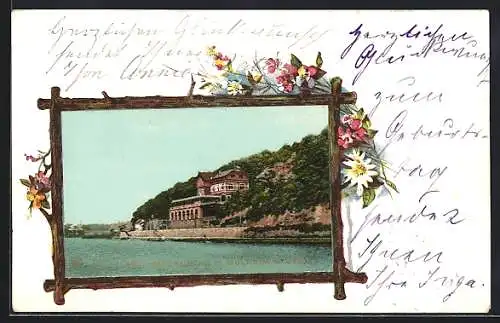 Herzlichen Glückwunsch
sendet Ihnen
Ihre Anna
Herzlichen
Glückwunsch
zum
Geburts-
tag
sendet
Ihnen
Ihre Inga.